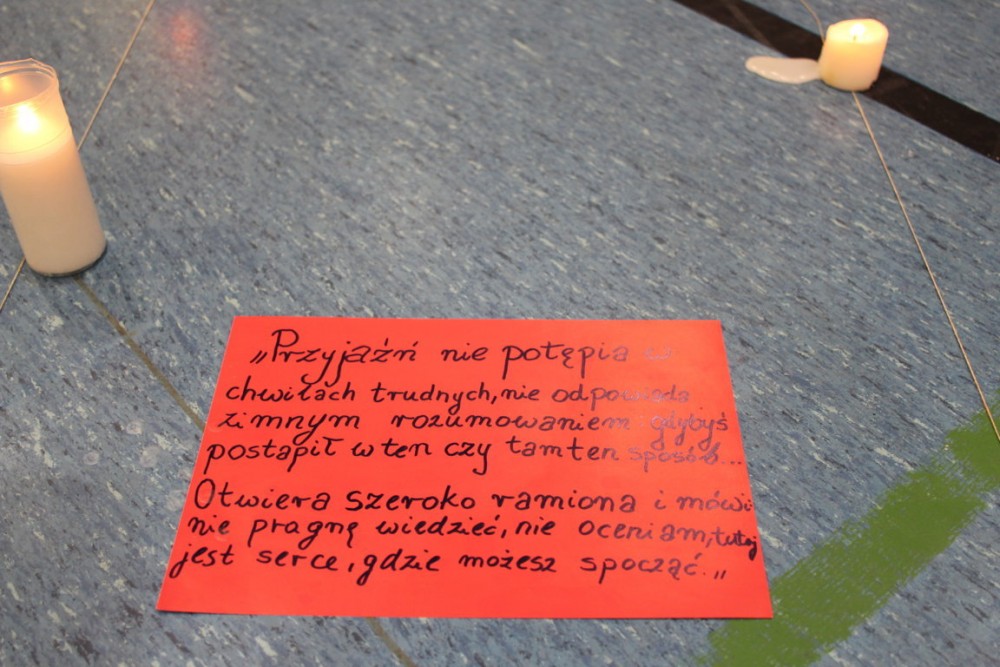 „Przyjaźń nie potępia w
chwilach trudnych, nie odpowiada
zimnym rozumowaniem gdybyś
postąpił w ten czy tamten sposób...
Otwiera szeroko ramiona i mówi:
nie pragnę wiedzieć, nie oceniam, tutaj
jest serce, gdzie możesz spocząć.„